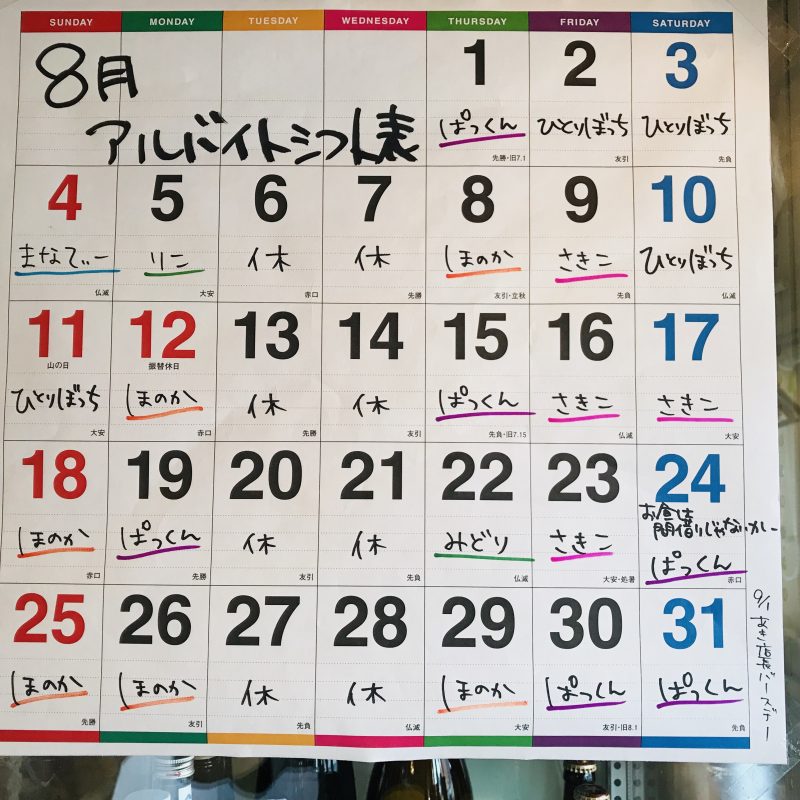 SUNDAY MONDAY TUESDAY WEDNESDAY THURSDAY FRIDAY SATURDAY
8月
アルバイトシフト表
1 2 3
ぱっくん ひとりぼっち ひとりぼっち
先勝・旧7.1 友引 先負
4 5 6 7 8 9 10
まなてぃー リン 休 休 ほのか さきこ ひとりぼっち
仏滅 大安 赤口 先勝 友引・立秋 先負 仏滅
11 12 13 14 15 16 17
山の日 振替休日
ひとりぼっち ほのか 休 休 ぱっくん さきこ さきこ
大安 赤口 先勝 友引 先負・旧7.15 仏滅 大安
18 19 20 21 22 23 24
お昼は
間借りじゃないカレー
ほのか ぱっくん 休 休 みどり さきこ ぱっくん
赤口 先勝 友引 先負 仏滅 大安・処暑 赤口
25 26 27 28 29 30 31
ほのか ほのか 休 休 ほのか ぱっくん ぱっくん
先勝 友引 先負 仏滅 大安 友引・旧8.1 先負
9/1 あき店長バースデー